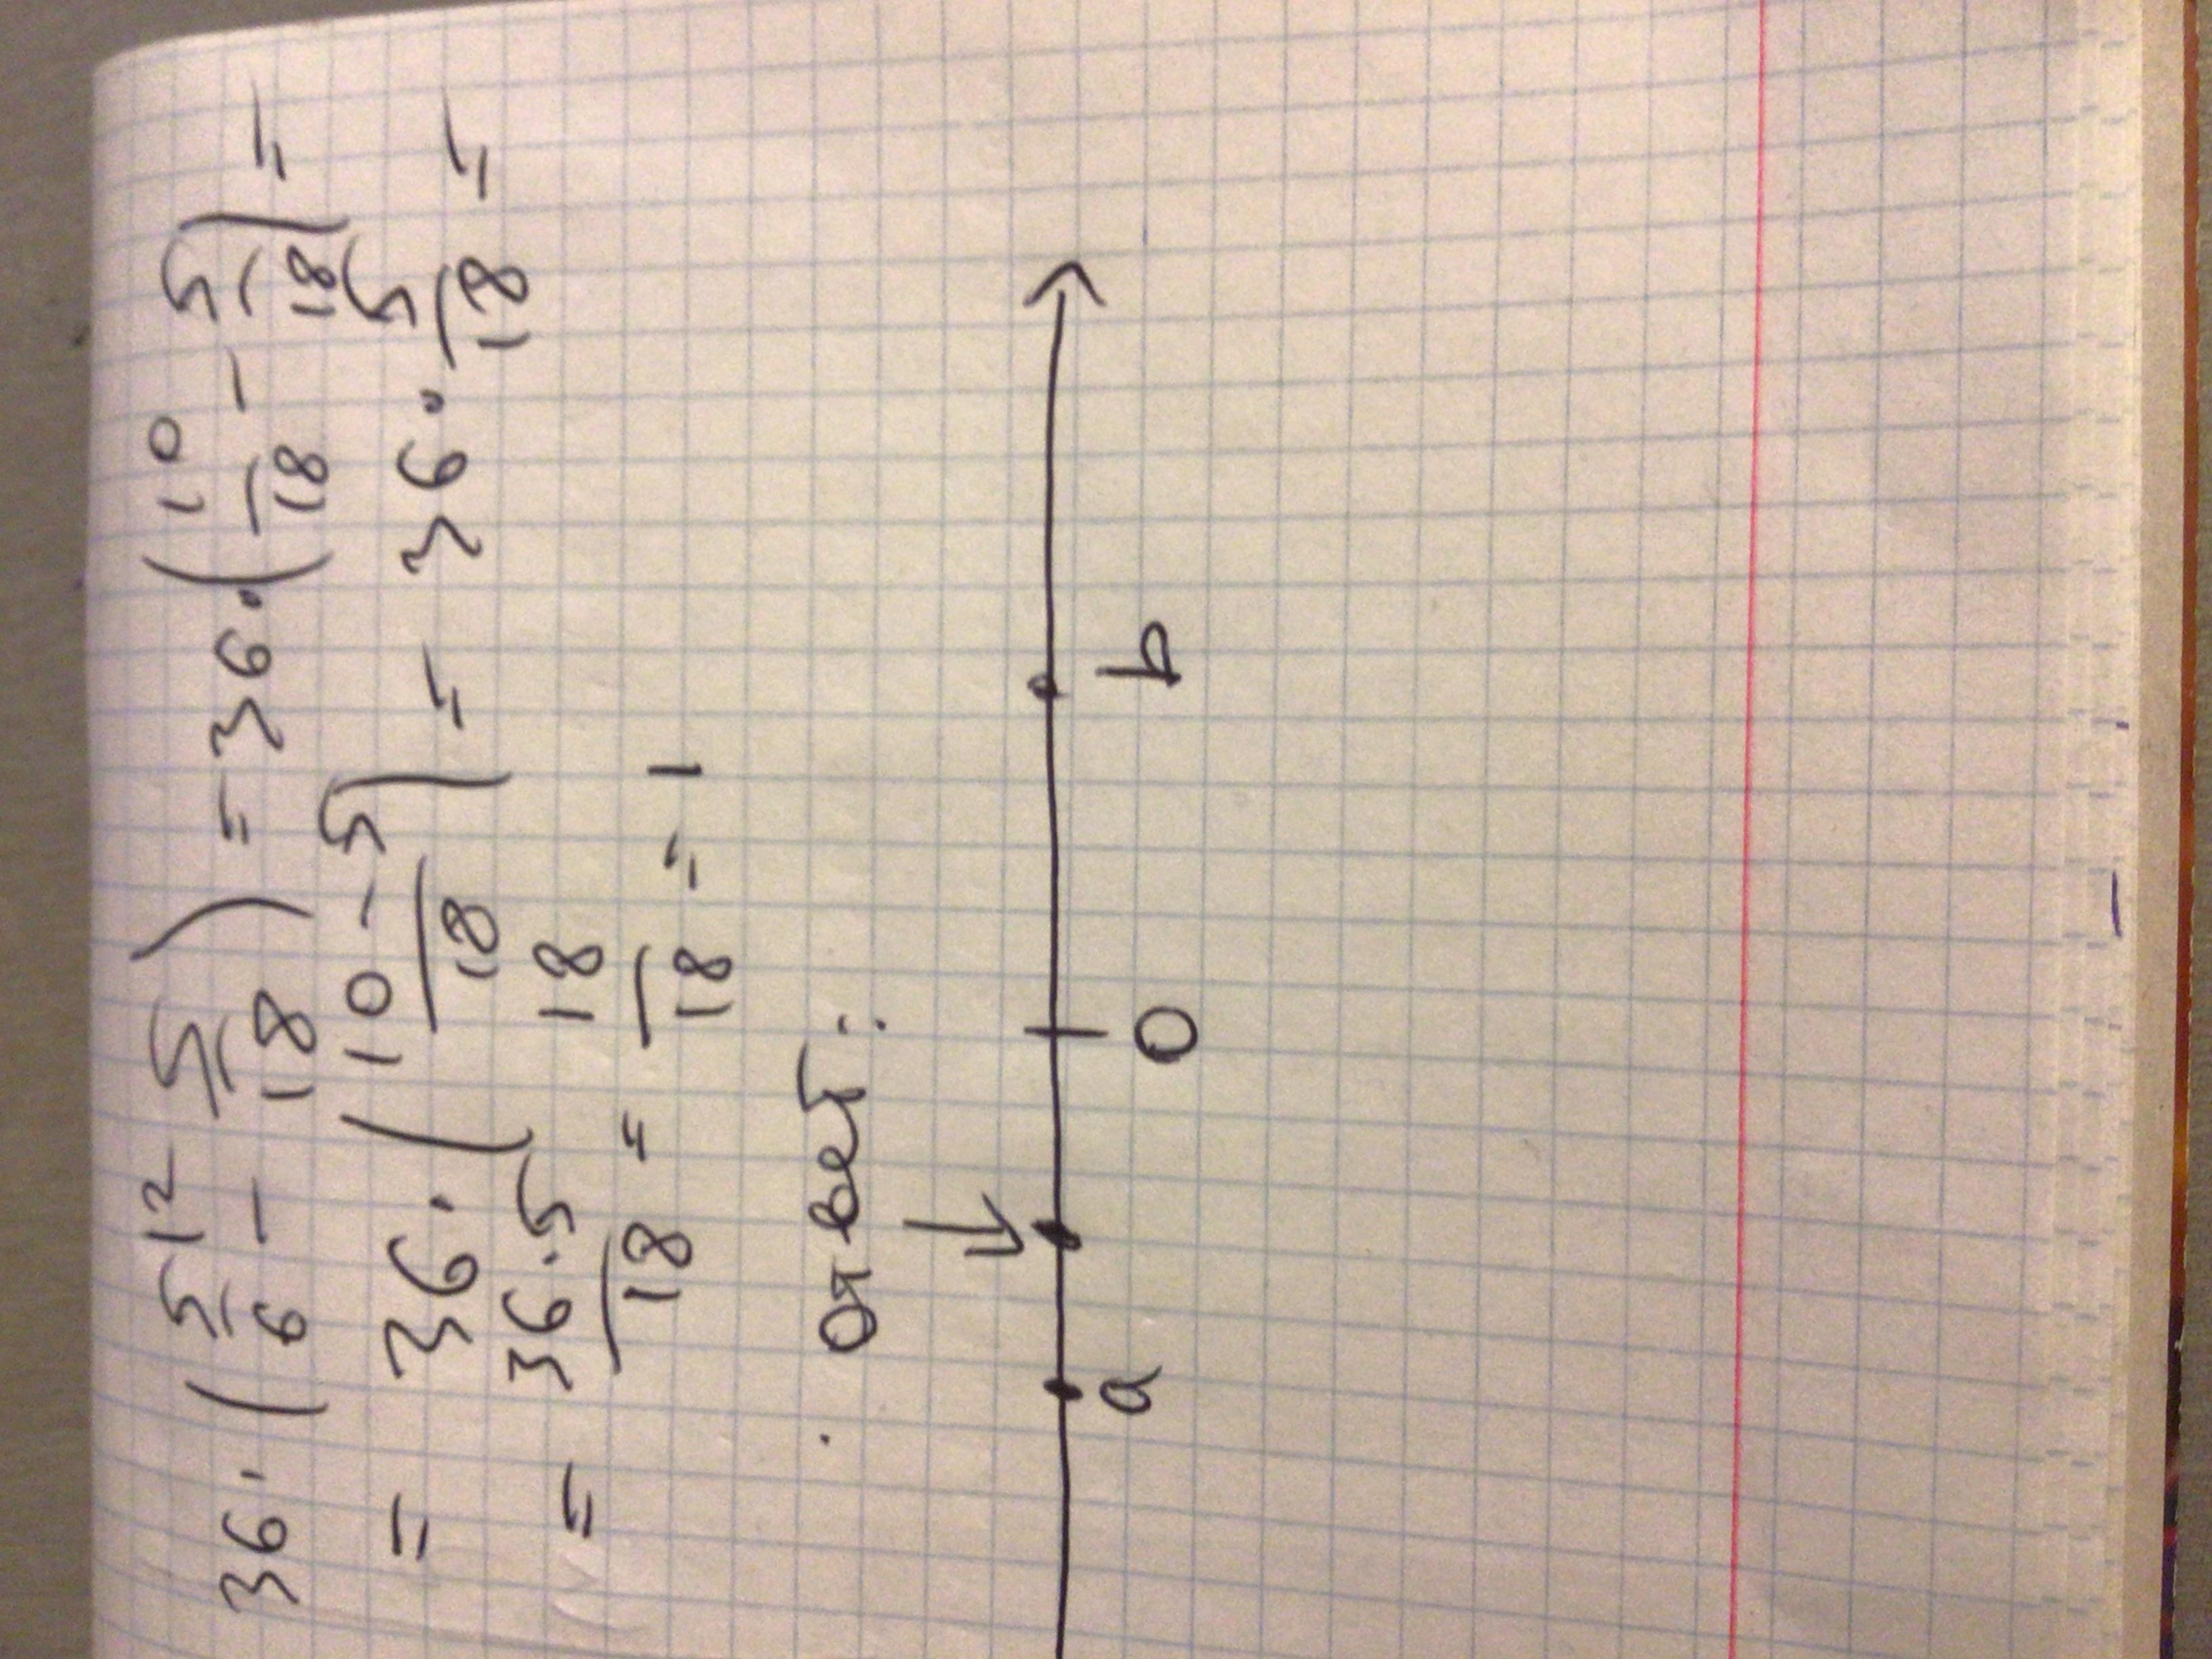 36·(5/6 \12 - 5/18) = 36·(10/18 - 5/18) =
= 36·(10-5/18) = 36·5/18 =
= 36·5/18 = 18/18 = 1
Ответ:
a 0 b